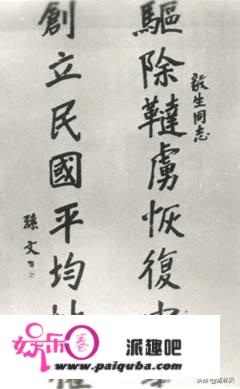 毅生同志
驅除韃虜恢復中
創立民國平均地權
孫文
娱乐圈
派趣吧
www.paiquba.com